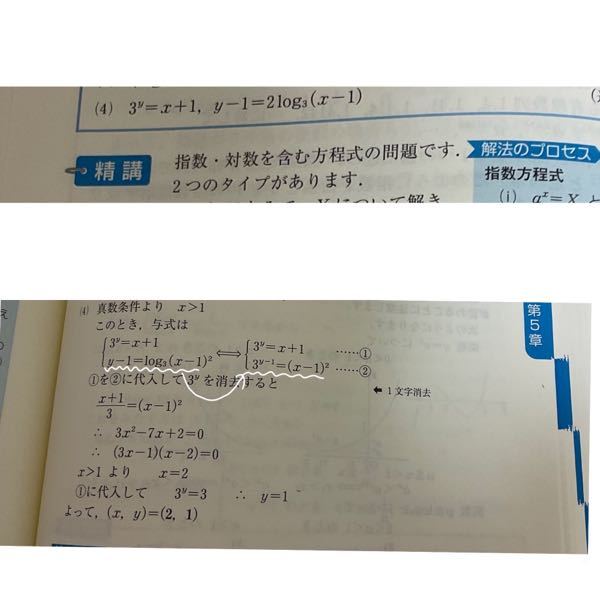 (4) 3^y=x+1, y−1=2log₃(x−1)
精講
指数・対数を含む方程式の問題です.
2つのタイプがあります.
解法のプロセス
指数方程式
(i) a^x=X と
(4) 真数条件より x>1
このとき, 与式は
{3^y=x+1 y−1=log₃(x−1)² ⟺ {3^y=x+1 ……① 3^(y−1)=(x−1)² ……②
①を②に代入して 3^y を消去すると
⬅ 1文字消去
(x+1)/3=(x−1)²
∴ 3x²−7x+2=0
∴ (3x−1)(x−2)=0
x>1 より x=2
①に代入して 3^y=3 ∴ y=1
よって, (x, y)=(2, 1)
第5章